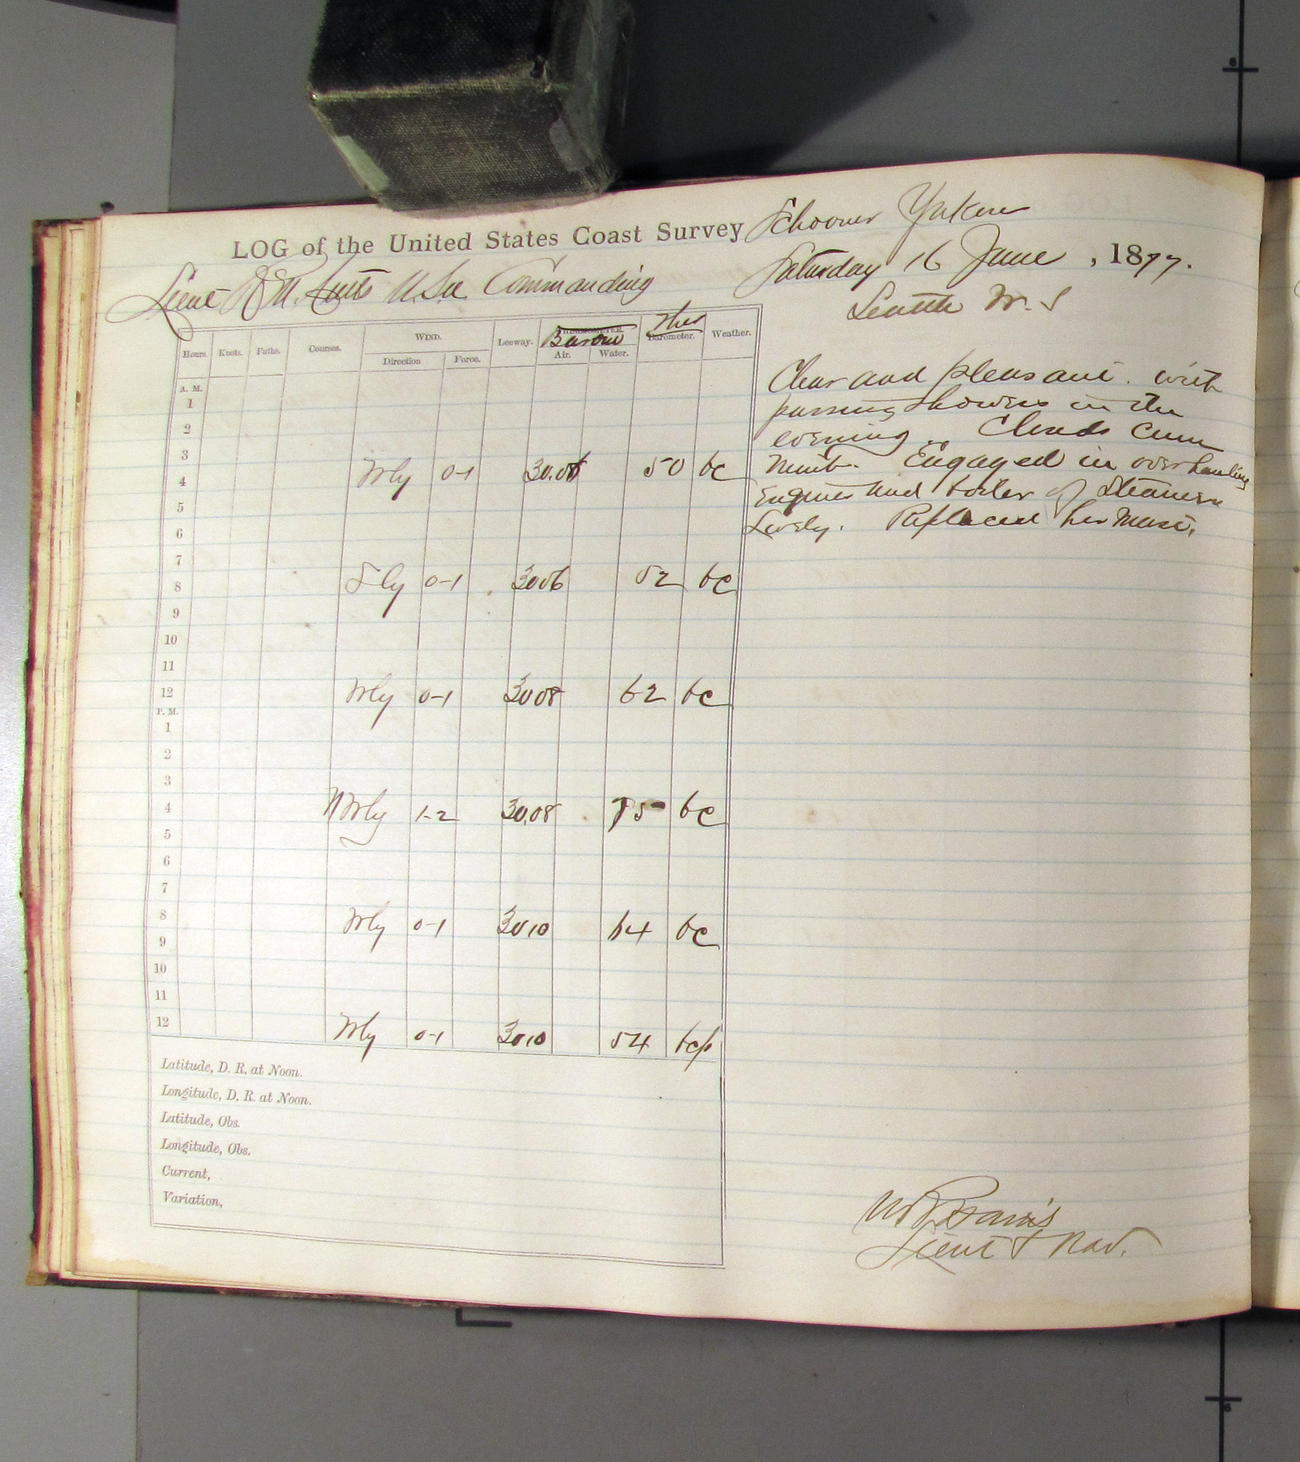 LOG of the United States Coast Survey Schooner Yukon
Saturday 16 June, 1877.
Lieut R M Cutts U.S.N. Commanding
Seattle W. T
Hours. Knots. Faths. Courses. WIND. Direction Force. Leeway. THERMOMETER. Barom Air. Water. Ther Barometer. Weather.
A. M.
1
2
3
4 Wly 0-1 30.06 50 bc
5
6
7
8 Sly 0-1 3006 52 bc
9
10
11
12 Wly 0-1 3008 62 bc
P. M.
1
2
3
4 NWly 1-2 30.08 75 bc
5
6
7
8 Wly 0-1 3010 64 bc
9
10
11
12 Wly 0-1 3010 54 bcp
Latitude, D. R. at Noon.
Longitude, D. R. at Noon.
Latitude, Obs.
Longitude, Obs.
Current,
Variation,
Clear and pleasant. with
passing showers in the
evening. Clouds cum
Nimb. Engaged in overhauling
Engines and boiler of Steamer
Lively. Replaced her mast.
Lieut & Nav.